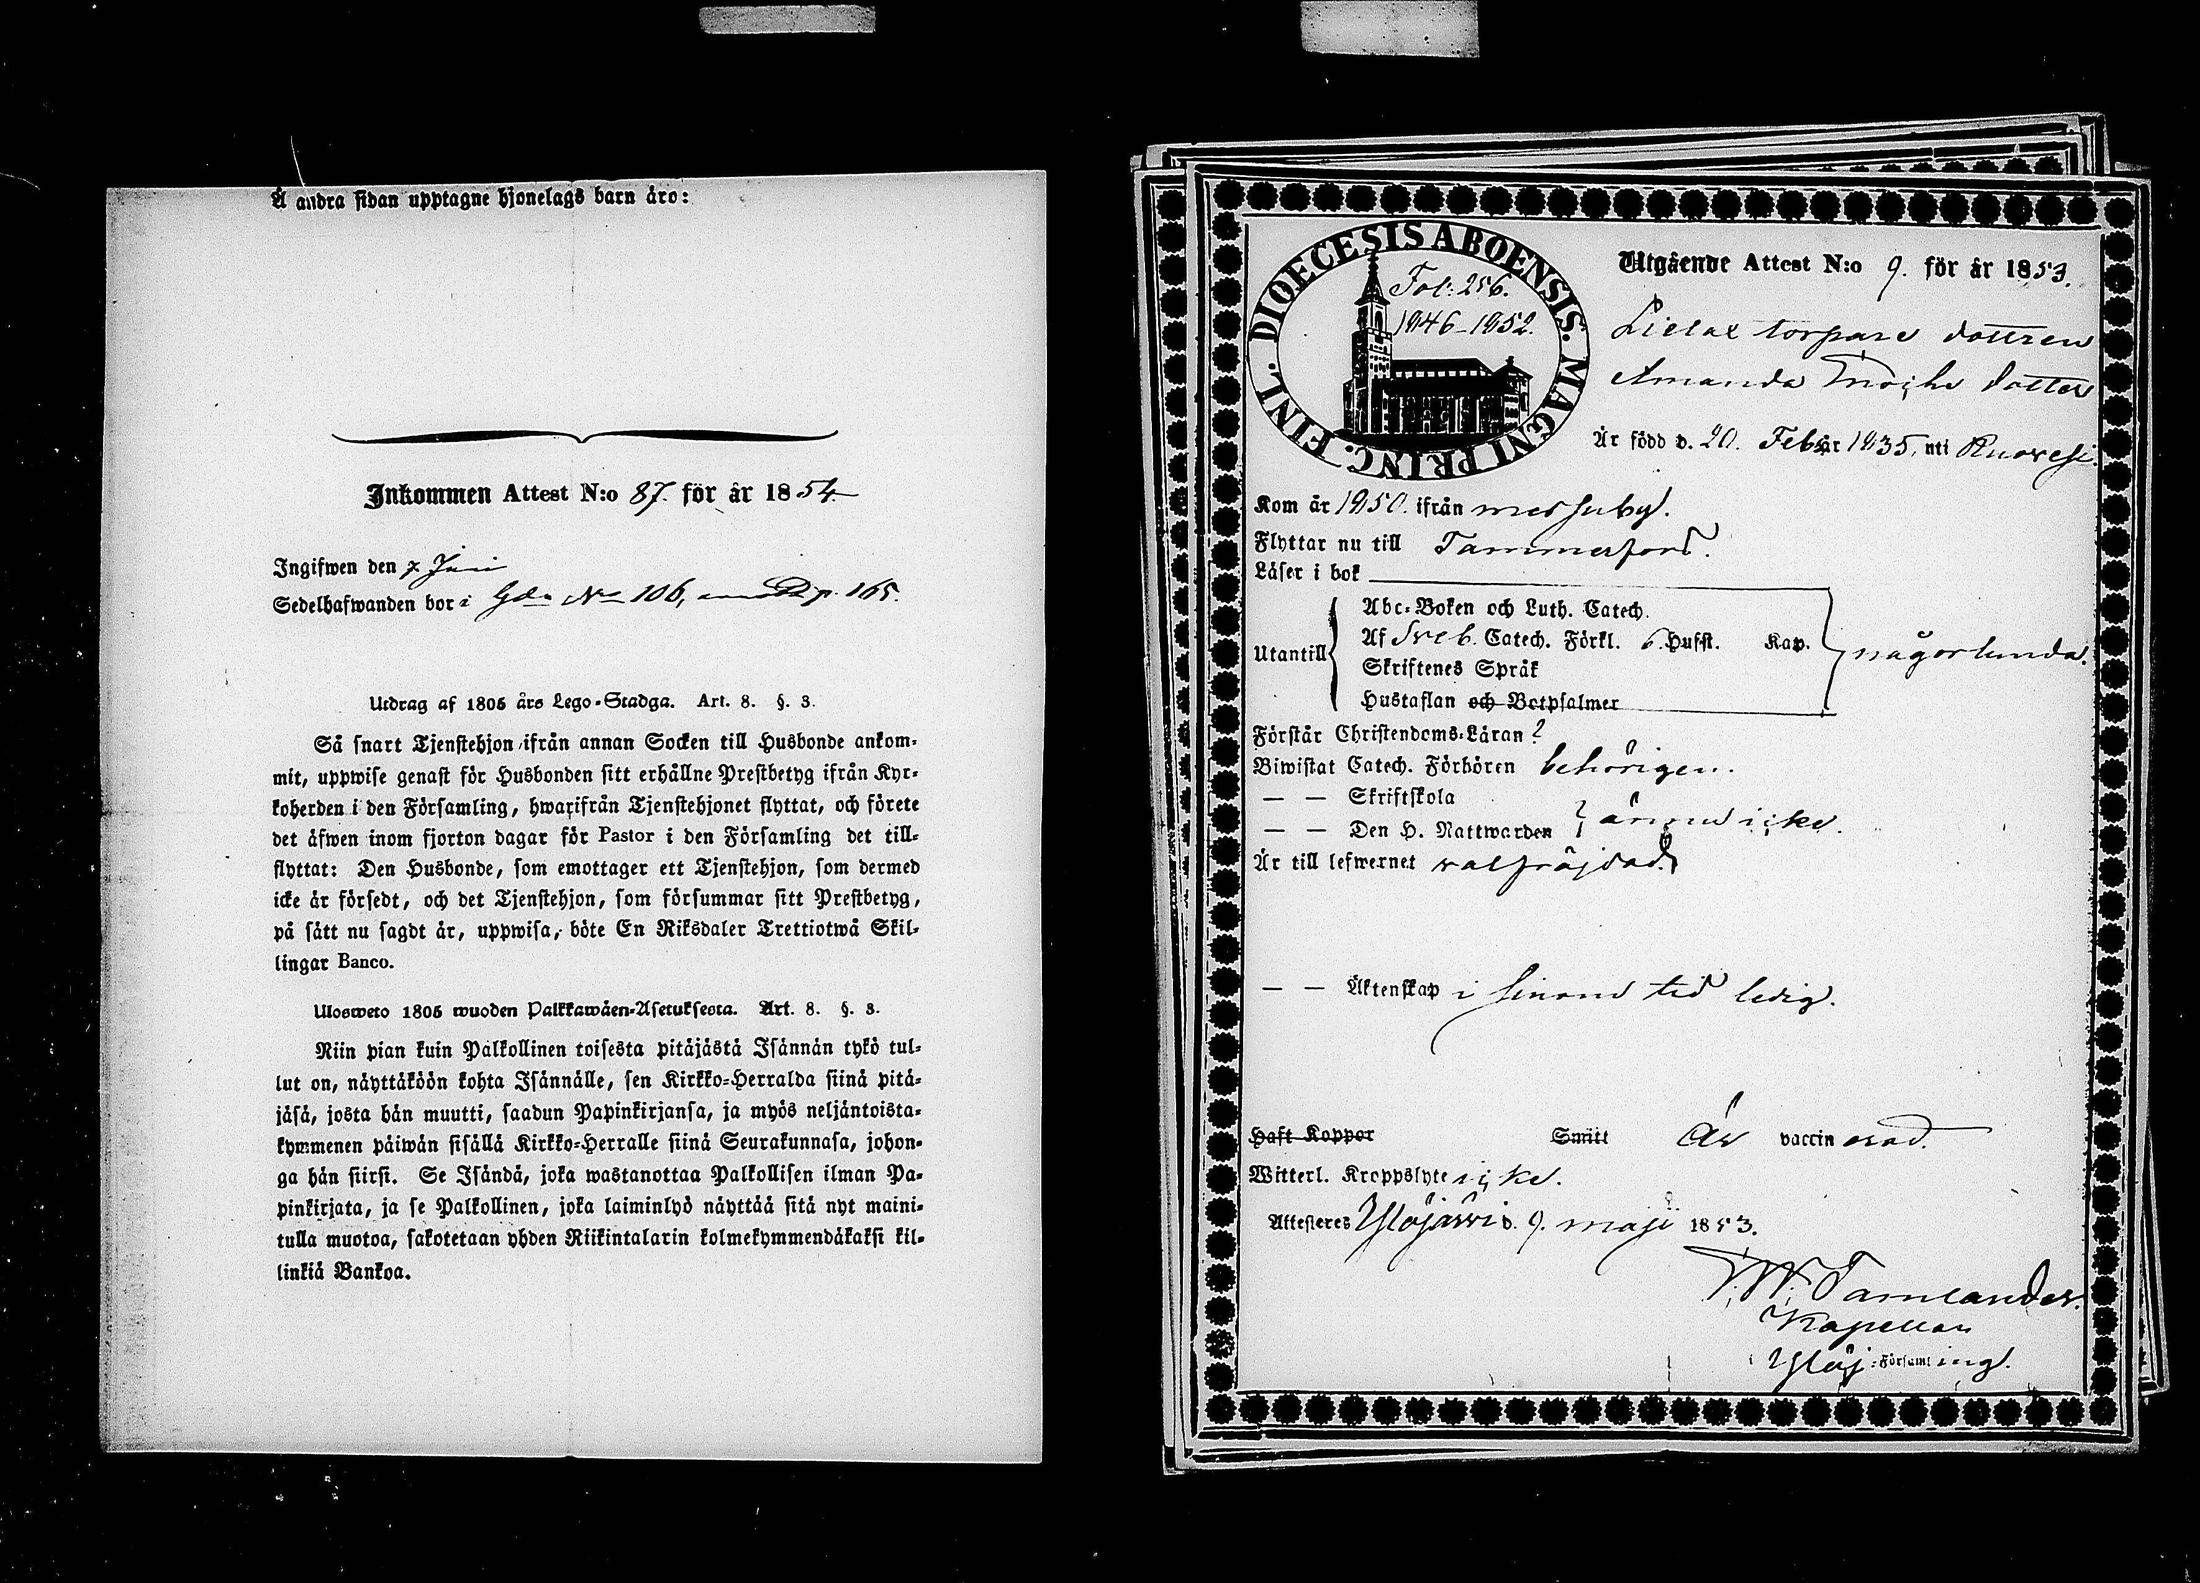 Å andra sidan upptagne hjonelags barn äro:
Inkommen Attest N:o 87. för år 1854.
Ingifwen den 7 Juni
Sedelhafwanden bor i Gdn No 106, p. 165.
Utdrag af 1805 års Lego-Stadga. Art. 8. §. 3.
Så snart Tjenstehjon ifrån annan Socken till Husbonde ankom-
mit, uppwise genast för Husbonden sitt erhållne Prestbetyg ifrån Kyr-
koherden i den Församling, hwarifrån Tjenstehjonet flyttat, och förete
det äfwen inom fjorton dagar för Pastor i den Församling det till-
flyttat: Den Husbonde, som emottager ett Tjenstehjon, som dermed
icke är försedt, och det Tjenstehjon, som försummar sitt Prestbetyg,
på sätt nu sagdt är, uppwisa, böte En Riksdaler Trettiotwå Skil-
lingar Banco.
Ulosweto 1805 wuoden Palkkawäen-Asetuksesta. Art. 8. §. 3.
Niin pian kuin Palkollinen toisesta pitäjästä Isännän tykö tul-
lut on, näyttäköön kohta Isännälle, sen Kirkko-Herralda siinä pitä-
jäsä, josta hän muutti, saadun Papinkirjansa, ja myös neljäntoista-
kymmenen päiwän sisällä Kirkko-Herralle siinä Seurakunnasa, johon-
ga hän siirsi. Se Isändä, joka wastanottaa Palkollisen ilman Pa-
pinkirjata, ja se Palkollinen, joka laiminlyö näyttää sitä nyt maini-
tulla muotoa, sakotetaan yhden Riikintalarin kolmekymmendäkaksi kil-
linkiä Bankoa.
DIOECESIS ABOENSIS. MAGNI PRINC. FINL.
Fol: 256.
1846-1852.
Utgående Attest N:o 9. för år 1853.
Lielax torpare dottren
Amanda dotter
Är född d. 20. Feb år 1835, uti Ruovesi.
Kom år 1850. ifrån Messuby.
Flyttar nu till Tammerfors.
Läser i bok
Utantill
Abc-Boken och Luth. Catech.
Af Sveb. Catech. Förkl. 6. Hufst. Kap.
Skriftenes Språk
Hustaflan och Botpsalmer
någorlunda.
Förstår Christendoms-Läran?
Biwistat Catech. Förhören behörigen.
— — Skriftskola
— — Den H. Nattwarden
ännu icke.
Är till lefwernet välfräjdad.
— — Äktenskap i sinom tid ledig.
Haft Koppor Smitt Är vaccinerad.
Witterl. Kroppslyte icke.
Attesteres Ylöjärvi d. 9. maji 1853.
Kapellan
i Ylöj. Församling.